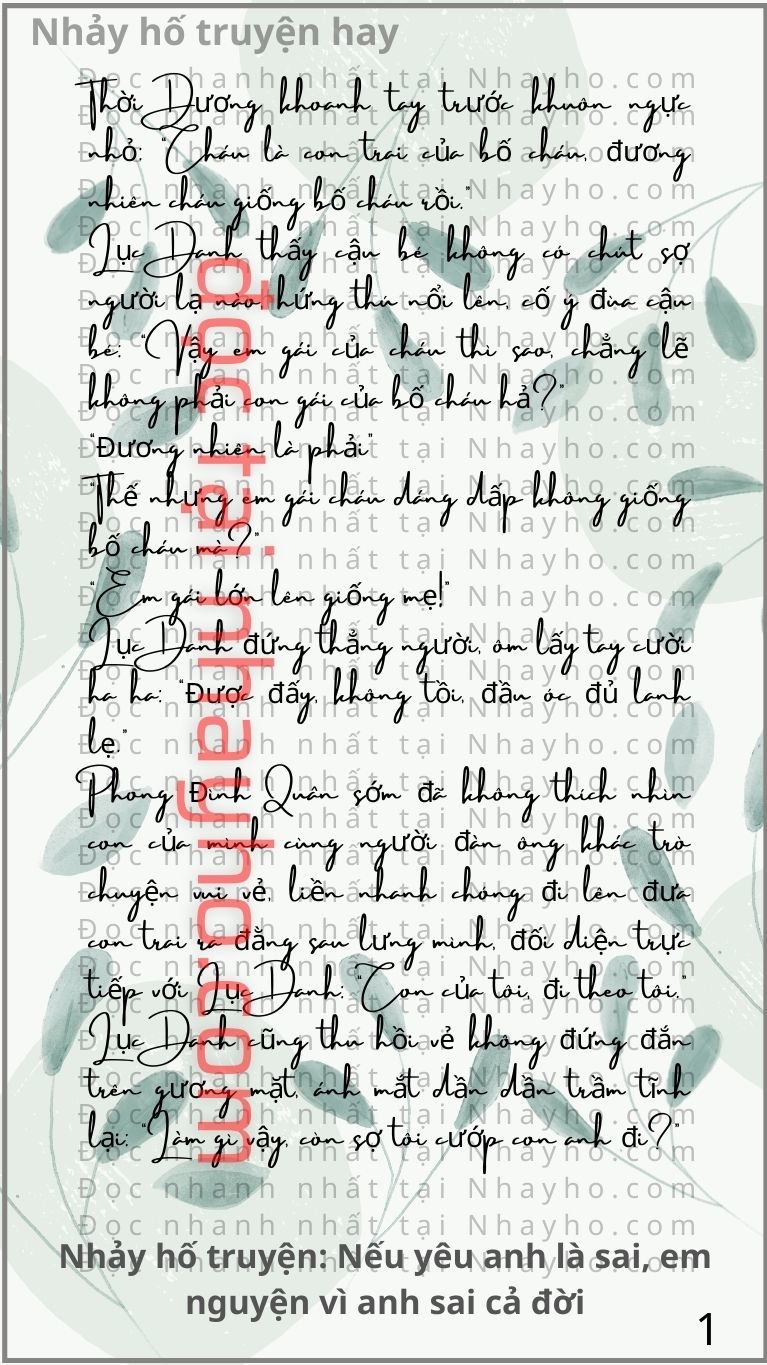 Nhảy hố truyện hay
Thời Dương khoanh tay trước khuôn ngực
nhỏ: "Cháu là con trai của bố cháu, đương
nhiên cháu giống bố cháu rồi."
Lục Danh thấy cậu bé không có chút sợ
người lạ nào hứng thú nổi lên, cố ý đùa cậu
bé: "Vậy em gái của cháu thì sao, chẳng lẽ
không phải con gái của bố cháu hả?"
"Đương nhiên là phải"
"Thế nhưng em gái cháu dáng dấp không giống
bố cháu mà?"
"Em gái lớn lên giống mẹ!"
Lục Danh đứng thẳng người, ôm lấy tay cười
ha ha: "Được đấy, không tồi, đầu óc đủ lanh
lẹ."
Phong Đình Quân sớm đã không thích nhìn
con của mình cùng người đàn ông khác trò
chuyện vui vẻ, liền nhanh chóng đi lên đưa
con trai ra đằng sau lưng mình, đối diện trực
tiếp với Lục Danh: "Con của tôi, đi theo tôi."
Lục Danh cũng thu hồi vẻ không đứng đắn
trên gương mặt, ánh mắt dần dần trầm tĩnh
lại: "Làm gì vậy, còn sợ tôi cướp con anh đi?"
đọc tại nhayho.com
Đọc nhanh nhất tại Nhayho.com
Nhảy hố truyện: Nếu yêu anh là sai, em
nguyện vì anh sai cả đời
1